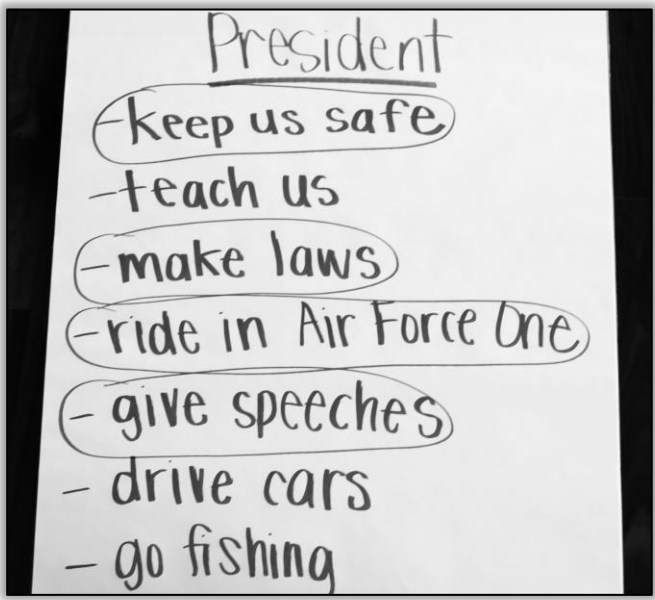 President
-keep us safe
-teach us
-make laws
-ride in Air Force One
- give speeches
- drive cars
- go fishing